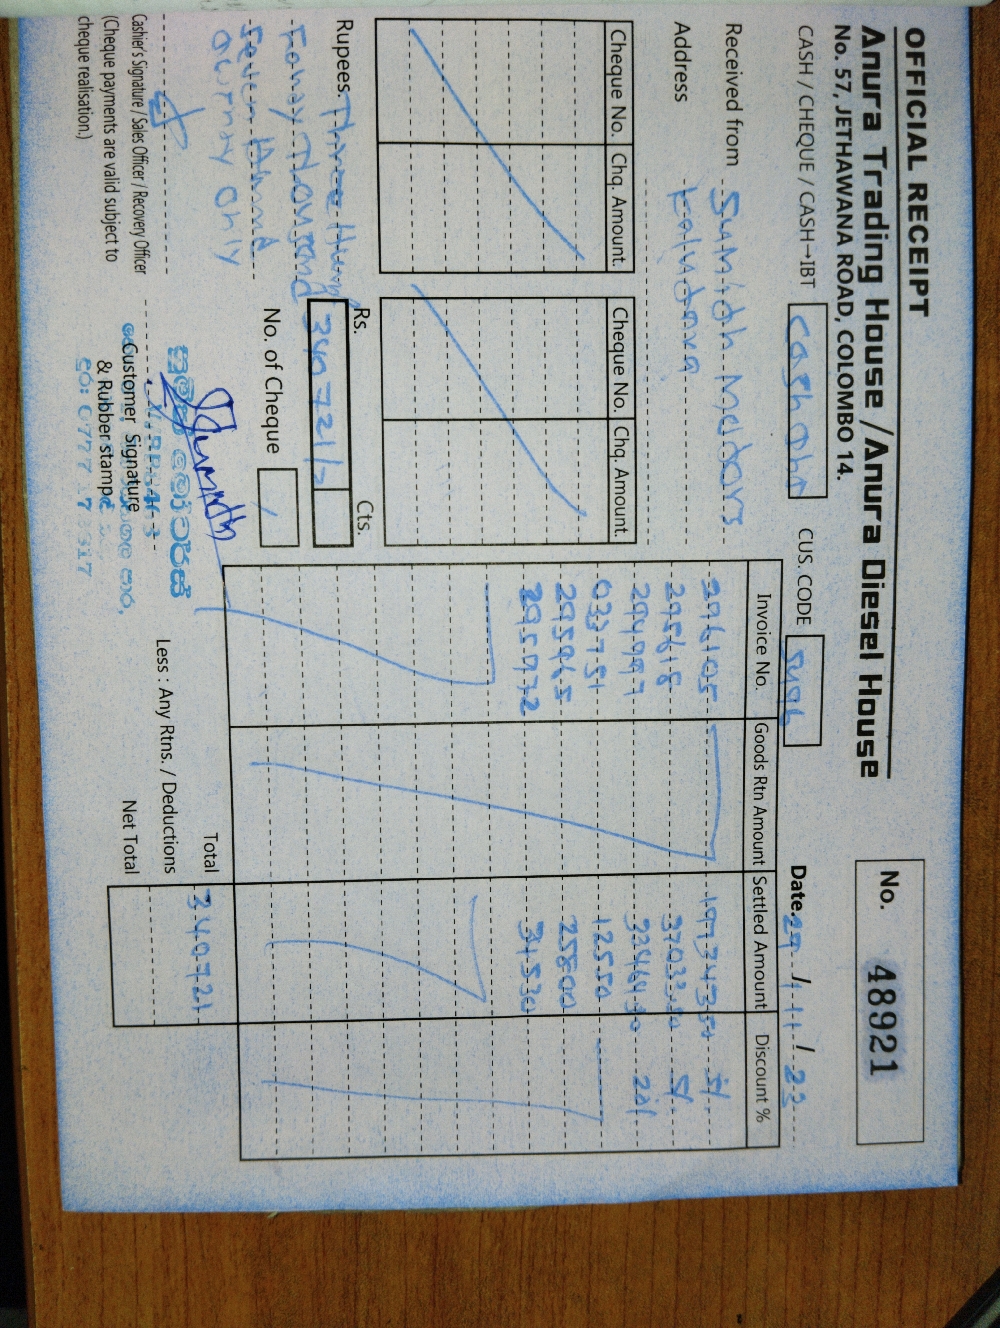 OFFICIAL RECEIPT
Anura Trading House / Anura Diesel House
No. 57, JETHAWANA ROAD, COLOMBO 14.
No. 48921
CASH / CHEQUE / CASH→IBT Cash CUS. CODE Date. 29 / 11 / 23
Received from Sumidh Motors
Address Kalundawa
Cheque No. Chq. Amount. Cheque No. Chq. Amount.
Invoice No. Goods Rtn Amount Settled Amount Discount %
296105 197343.50
295618 37033.50
294997
033751 12550
295965 25800
295072 34530
Rs. Cts.
Rupees. Three Hund
Fourty Thousand
Seven Hunne
only
340721/=
No. of Cheque
Total 340721
Less : Any Rtns. / Deductions
Net Total
Cashier's Signature / Sales Officer / Recovery Officer
(Cheque payments are valid subject to
cheque realisation.)
Customer Signature
& Rubber stamp